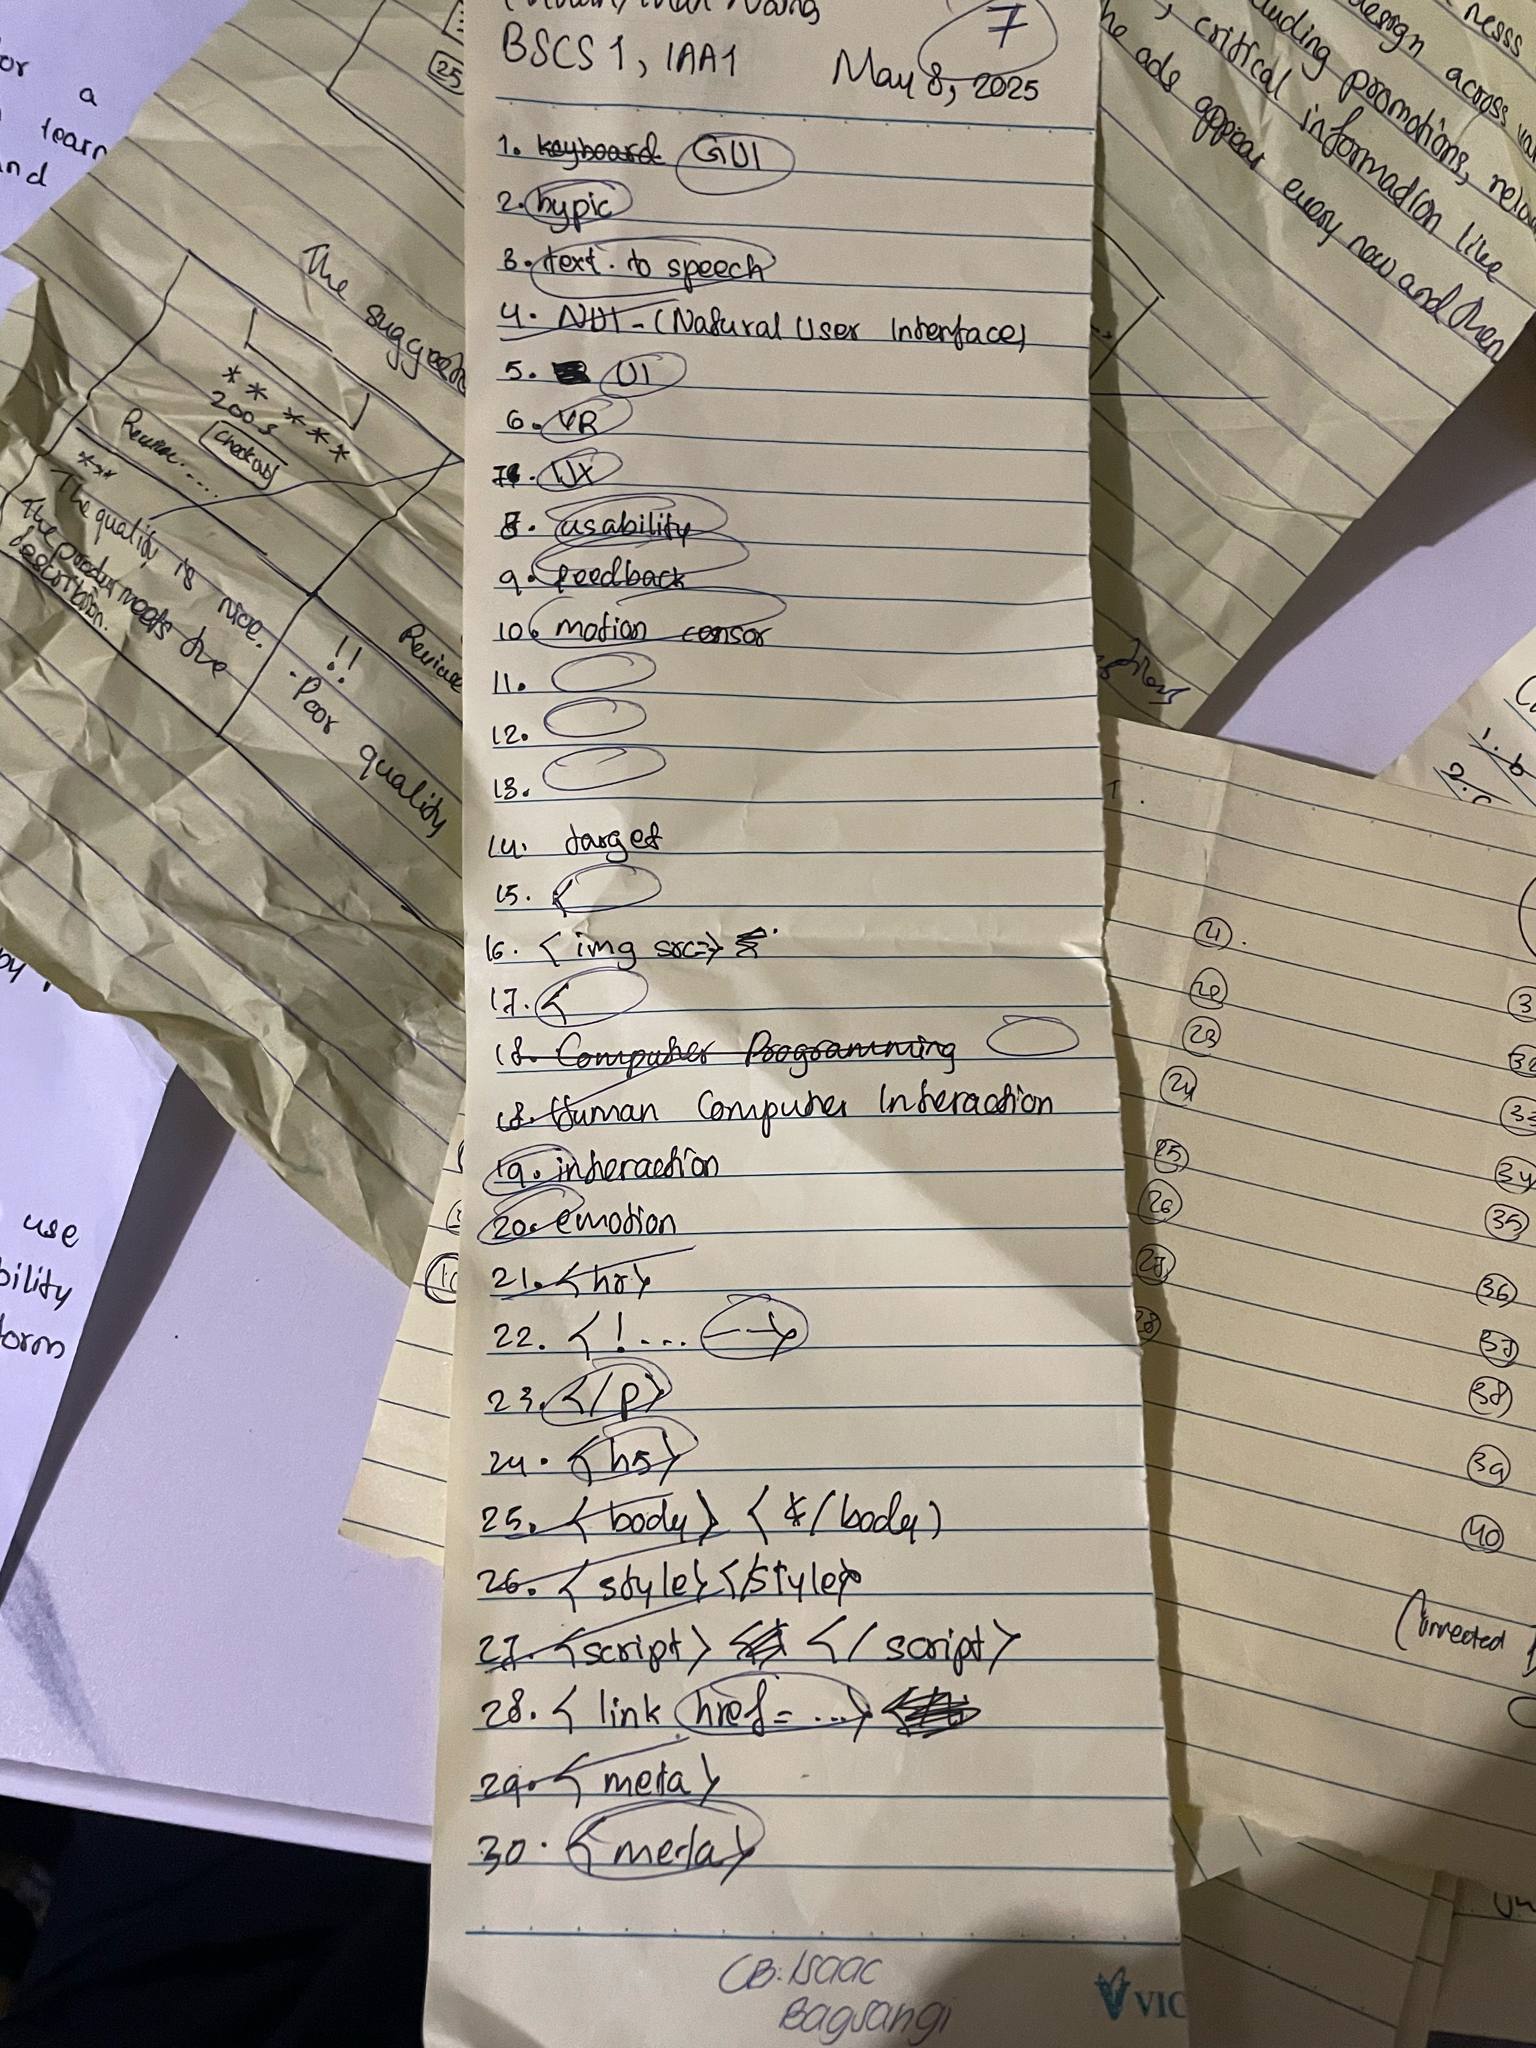 BSCS 1, IAA1
7
May 8, 2025
1. keyboard GUI
2. hypic
3. text. to speech
4. NUI - (Natural User Interface)
5. UI
6. VR
7. UX
8. usability
9. feedback
10. motion censor
11.
12.
13.
14. target
15. <
16. < img src=>
17. <
18. Computer Programming
18. Human Computer Interaction
19. interaction
20. emotion
21. <hr>
22. < !... -->
23. </p>
24. <h5>
25. <body> < /body)
26. <style></style>
27. <script> </ script>
28. < link href= ...>
29. < meta>
30. < meta>
CB: Isaac
Bagsangi
VIC
or a
learn
and
25
The
** ***
200s
Checkout
Review.....
***
The quality is nice.
The product meets the
description.
!!
- Poor quality
use
bility
form
design across
promotions,
critical information like
ads appear every now and then
1. b
2. c
1.
21.
22
23
24
25
26
27
28
32
33
34
35
36
37
38
39
40